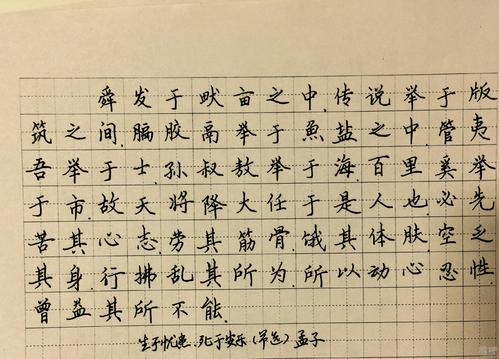 舜发于畎亩之中,传说举于版
筑之间.膈胶鬲举于魚盐之中管夷
吾举于士.孙叔敖举于海.百里奚举
于市.故天将降大任于是人也.必先
苦其心志.劳其筋骨.饿其体肤空乏
其身.行拂乱其所为.所以动心忍性.
曾益其所不能.
生于忧患.死于安乐(节选)孟子